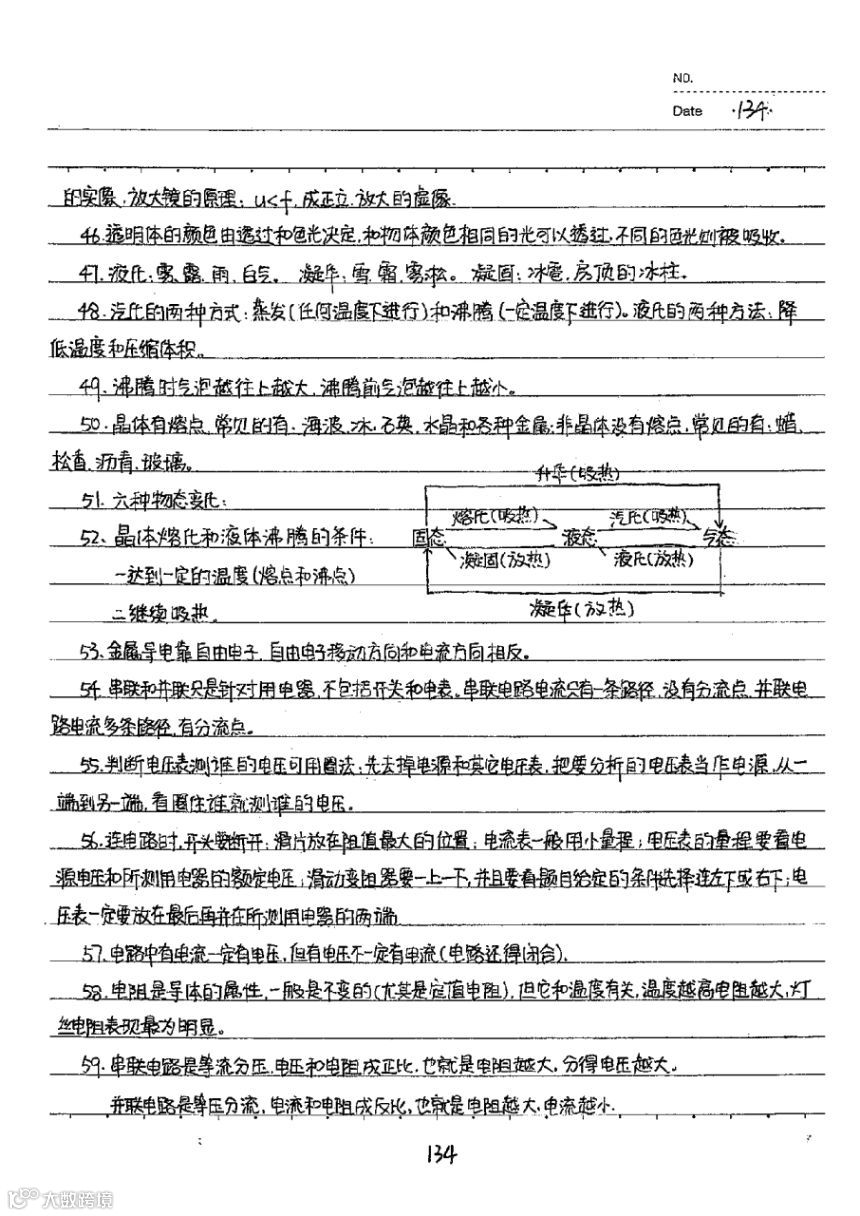 NO.
Date ·134·
的实像.放大镜的原理：u<f,成正立.放大的虚像.
46.透明体的颜色由透过和色光决定,和物体颜色相同的光可以透过,不同的色光则被吸收。
47.液化：雾.露.雨.白气。凝华：雪.霜.雾凇。凝固：冰雹.房顶的冰柱。
48.汽化的两种方式：蒸发(任何温度下进行)和沸腾(一定温度下进行)。液化的两种方法：降
低温度和压缩体积。
49.沸腾时气泡越往上越大.沸腾前气泡越往上越小。
50.晶体有熔点.常见的有：海波.冰.石英.水晶和各种金属;非晶体没有熔点,常见的有：蜡.
松香.沥青.玻璃。
升华(吸热)
51.六种物态变化：
熔化(吸热)
汽化(吸热)
52、晶体熔化和液体沸腾的条件：
固态
液态
气态
凝固(放热)
液化(放热)
一达到一定的温度(熔点和沸点)
二继续吸热.
凝华(放热)
53.金属导电靠自由电子.自由电子移动方向和电流方向相反。
54.串联和并联只是针对用电器,不包括开关和电表。串联电路电流只有一条路径,没有分流点.并联电
路电流多条路径,有分流点。
55.判断电压表测谁的电压可用圈法：先去掉电源和其它电压表,把要分析的电压表当作电源,从一
端到另一端,看圈住谁就测谁的电压。
56.连电路时,开关要断开;滑片放在阻值最大的位置;电流表一般用小量程;电压表的量程要看电
源电压和所测用电器的额定电压;滑动变阻器要一上一下,并且要看题目给定的条件先择连左下或右下;电
压表一定要放在最后再并在所测用电器的两端
57.电路中有电流一定有电压,但有电压不一定有电流(电路还得闭合).
58.电阻是导体的属性,一般是不变的(尤其是定值电阻),但它和温度有关,温度越高电阻越大,灯
丝电阻表现最为明显。
59.串联电路是等流分压,电压和电阻成正比.也就是电阻越大,分得电压越大。
并联电路是等压分流,电流和电阻成反比,也就是电阻越大.电流越小.
134
大数跨境